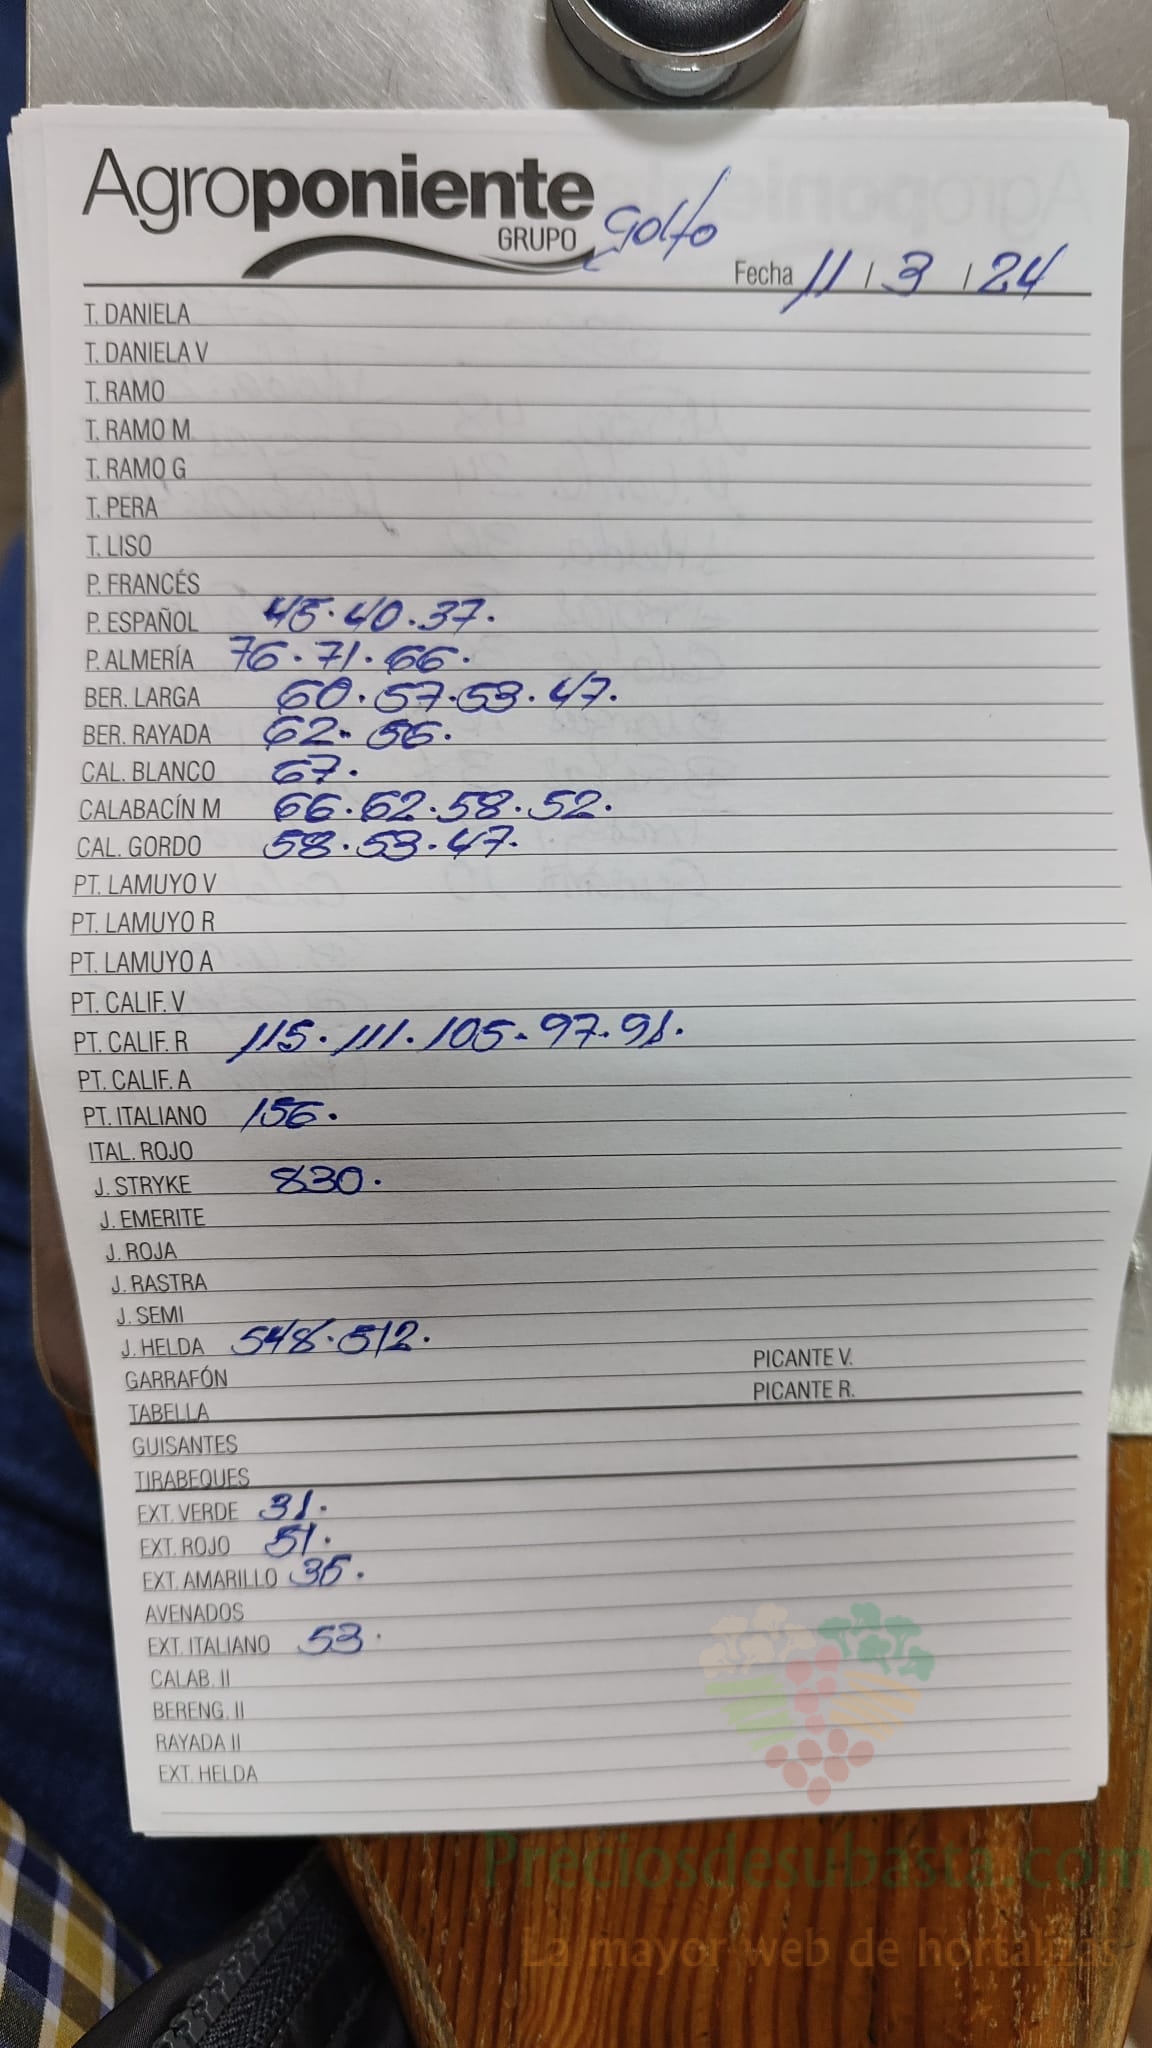 Agroponiente
GRUPO Golfo
Fecha 11 / 3 / 24
T. DANIELA
T. DANIELA V
T. RAMO
T. RAMO M
T. RAMO G
T. PERA
T. LISO
P. FRANCÉS
P. ESPAÑOL 45. 40. 37.
P. ALMERÍA 76. 71. 66.
BER. LARGA 60. 57. 53. 47.
BER. RAYADA 62. 56.
CAL. BLANCO 67.
CALABACÍN M 66. 62. 58. 52.
CAL. GORDO 58. 53. 47.
PT. LAMUYO V
PT. LAMUYO R
PT. LAMUYO A
PT. CALIF. V
PT. CALIF. R 115. 111. 105. 97. 91.
PT. CALIF. A
PT. ITALIANO 156.
ITAL. ROJO
J. STRYKE 830.
J. EMERITE
J. ROJA
J. RASTRA
J. SEMI
J. HELDA 548. 512.
GARRAFÓN PICANTE V.
TABELLA PICANTE R.
GUISANTES
TIRABEQUES
EXT. VERDE 31.
EXT. ROJO 51.
EXT. AMARILLO 35.
AVENADOS
EXT. ITALIANO 53.
CALAB. II
BERENG. II
RAYADA II
EXT. HELDA
Preciosdesubasta.com
La mayor web de hortalizas